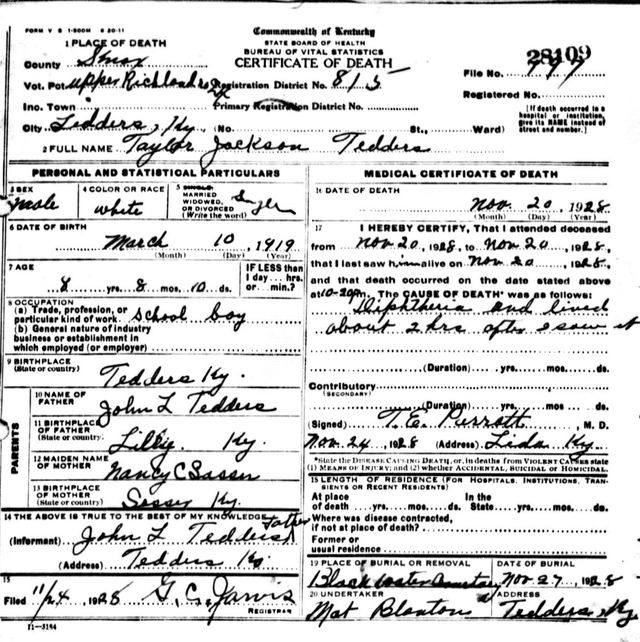 FORM V S 1-500M 6 20-11
Commonwealth of Kentucky
STATE BOARD OF HEALTH
BUREAU OF VITAL STATISTICS
CERTIFICATE OF DEATH
28109
1 PLACE OF DEATH
County Knox
Vot. Pct. upper Richland Registration District No. 815 File No.
Inc. Town Primary Registration District No. Registered No.
City Tedders, Ky. (No. St., Ward)
[If death occurred in a hospital or institution, give its NAME instead of street and number.]
2 FULL NAME Taylor Jackson Tedders
PERSONAL AND STATISTICAL PARTICULARS
3 SEX male
4 COLOR OR RACE white
5 SINGLE, MARRIED WIDOWED, OR DIVORCED (Write the word) Single
6 DATE OF BIRTH
March 10, 1919
(Month) (Day) (Year)
7 AGE
8 yrs. 8 mos. 10 ds.
IF LESS than 1 day ... hrs. or ... min.?
8 OCCUPATION
(a) Trade, profession, or particular kind of work. School boy
(b) General nature of industry business or establishment in which employed (or employer)
9 BIRTHPLACE
(State or country)
Tedders Ky.
PARENTS
10 NAME OF FATHER John L Tedders
11 BIRTHPLACE OF FATHER (State or country) Lilly, Ky.
12 MAIDEN NAME OF MOTHER Nancy C Sasser
13 BIRTHPLACE OF MOTHER (State or country) Sasser Ky.
14 THE ABOVE IS TRUE TO THE BEST OF MY KNOWLEDGE
(Informant) John L Tedders Father
(Address) Tedders Ky
15
Filed 11/24 1928 G. C. Jarvis
REGISTRAR
11-3184
MEDICAL CERTIFICATE OF DEATH
16 DATE OF DEATH
Nov. 20, 1928
(Month) (Day) (Year)
17 I HEREBY CERTIFY, That I attended deceased
from Nov 20, 1928, to Nov 20, 1928,
that I last saw him alive on Nov 20, 1928,
and that death occurred on the date stated above
at 10-20 m. The CAUSE OF DEATH* was as follows:
Diphtheria and lived
about 2 hrs after I saw it
(Duration) yrs. mos. ds.
Contributory
(SECONDARY)
(Duration) yrs. mos. ds.
(Signed) T. E. M. D.
Nov. 24, 1928 (Address) Lida Ky.
*State the DISEASE CAUSING DEATH, or, in deaths from VIOLENT CAUSES state (1) MEANS OF INJURY; and (2) whether ACCIDENTAL, SUICIDAL or HOMICIDAL.
15 LENGTH OF RESIDENCE (FOR HOSPITALS, INSTITUTIONS, TRANSIENTS OR RECENT RESIDENTS)
At place of death yrs. mos. ds. In the State yrs. mos. ds.
Where was disease contracted, if not at place of death?
Former or usual residence
19 PLACE OF BURIAL OR REMOVAL DATE OF BURIAL
Black water Cemetery Nov-27, 1928
20 UNDERTAKER ADDRESS
Mat Blanton Tedders, Ky